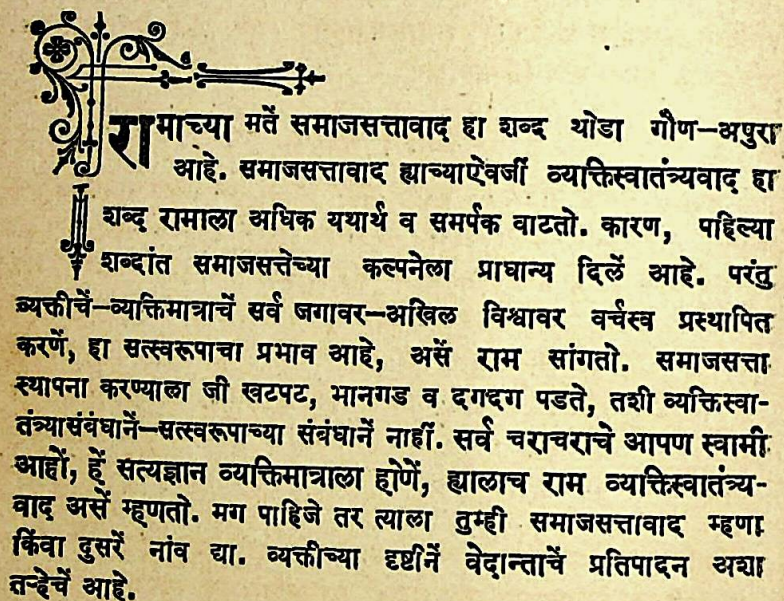 रामाच्या मतें समाजसत्तावाद हा शब्द थोडा गौण–अपुरा
आहे. समाजसत्तावाद ह्याच्याऐवजीं व्यक्तिस्वातंत्र्यवाद हा
शब्द रामाला अधिक यथार्थ व समर्पक वाटतो. कारण, पहिल्या
शब्दांत समाजसत्तेच्या कल्पनेला प्राधान्य दिलें आहे. परंतु
व्यक्तीचें–व्यक्तिमात्राचें सर्व जगावर–अखिल विश्वावर वर्चस्व प्रस्थापित
करणें, हा सत्स्वरूपाचा प्रभाव आहे, असें राम सांगतो. समाजसत्ता
स्थापना करण्याला जी खटपट, भानगड व दगदग पडते, तशी व्यक्तिस्वा-
तंत्र्यासंबंधानें–सत्स्वरूपाच्या संबंधानें नाहीं. सर्व चराचराचे आपण स्वामी
आहों, हें सत्यज्ञान व्यक्तिमात्राला होणें, ह्यालाच राम व्यक्तिस्वातंत्र्य-
वाद असें म्हणतो. मग पाहिजे तर त्याला तुम्ही समाजसत्तावाद म्हणा
किंवा दुसरें नांव द्या. व्यक्तीच्या दृष्टीनें वेदान्ताचें प्रतिपादन अशा
तऱ्हेचें आहे.